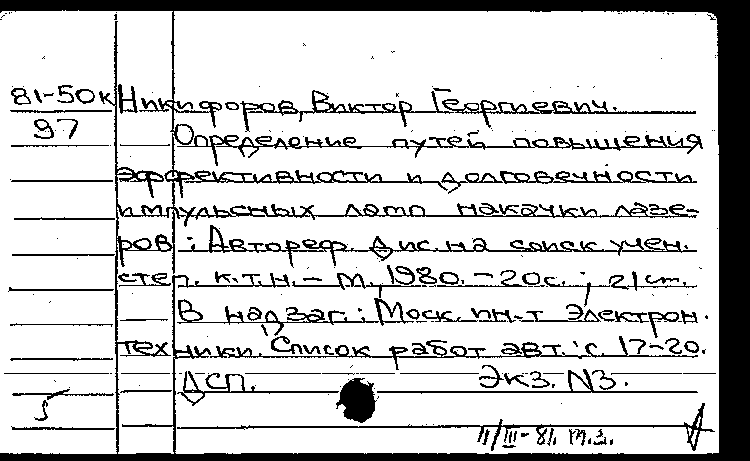 81-50к Никифоров, Виктор Георгиевич.
97 Определение путей повышения
эффективности и долговечности
импульсных ламп накачки лазе-
ров : Автореф. дис. на соиск. учен.
степ. к.т.н. - М., 1980. - 20с. ; 21 см.
В надзаг.: Моск. ин-т электрон.
техники. Список работ авт.: с. 17-20.
ДСП. Экз. N3.
5
11/III-81. т.з.